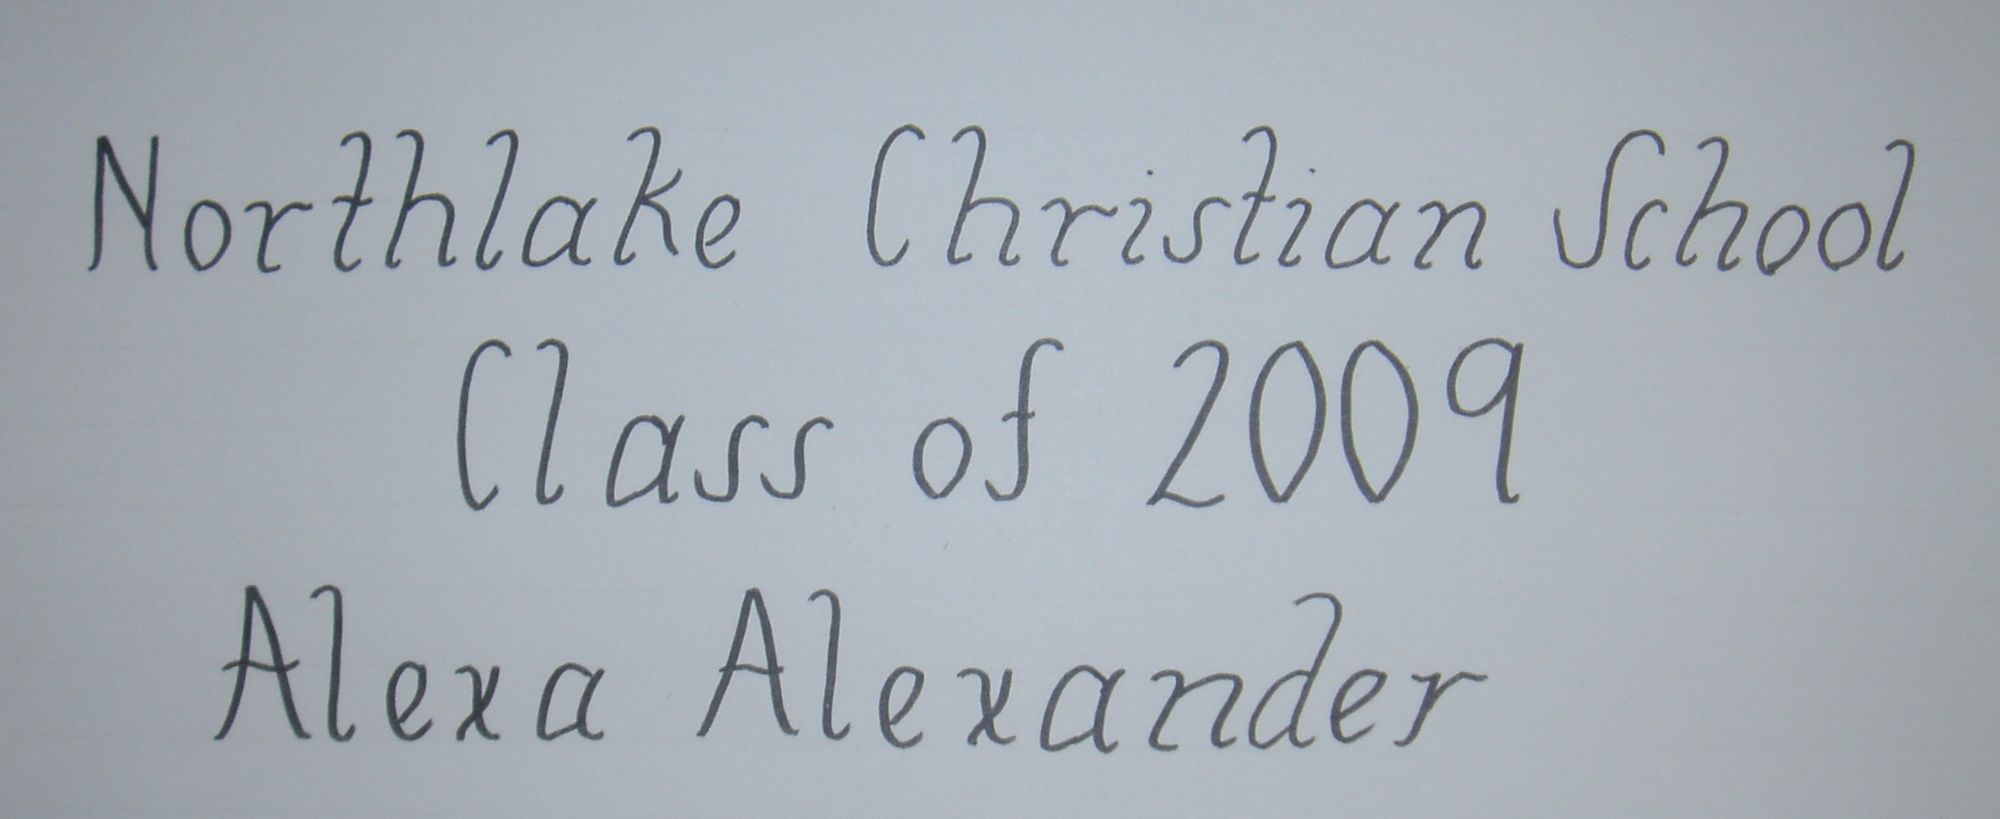 Northlake Christian School
Class of 2009
Alexa Alexander